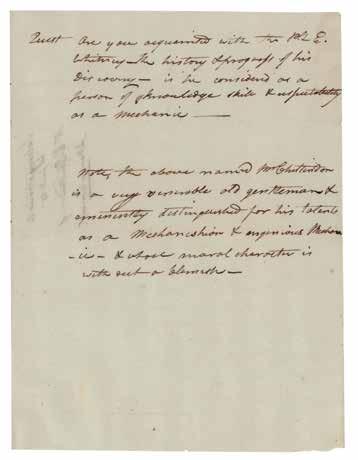 Quest Are you acquainted with the Mr E.
Whitney - The history & progress of his
Discovery - is he considered as a
person of knowledge skill & respectability
as a Mechanic —
Note, the above named Mr Chittendon
is a very venerable old gentleman &
eminently distinguished for his talents
as a Mechanishion & engenious Mechan
-ic - & whose moral character is
with out a blemish —